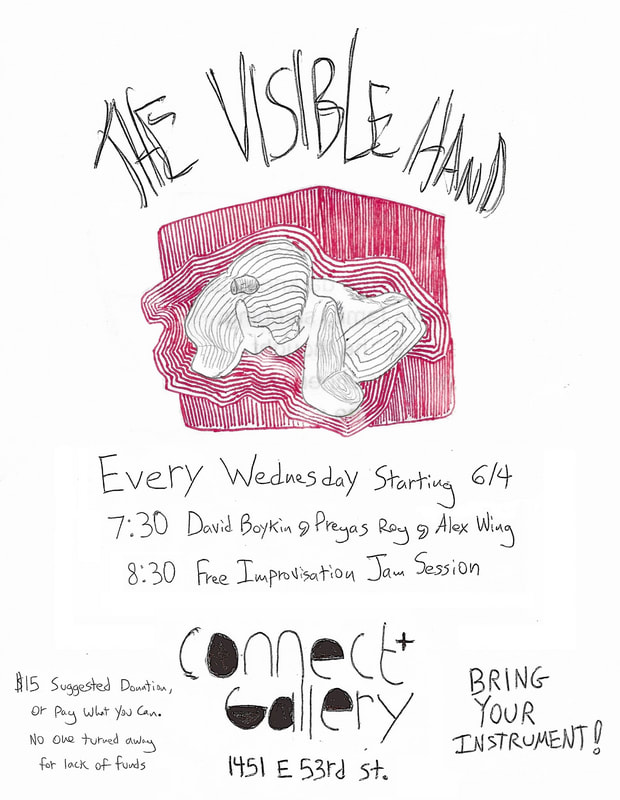 THE VISIBLE HAND
Every Wednesday Starting 6/4
7:30 David Boykin & Preyas Roy & Alex Wing
8:30 Free Improvisation Jam Session
connect+
Gallery
1451 E 53rd St.
$15 Suggested Donation,
Or Pay What You Can.
No one turned away
for lack of funds
BRING
YOUR
INSTRUMENT!